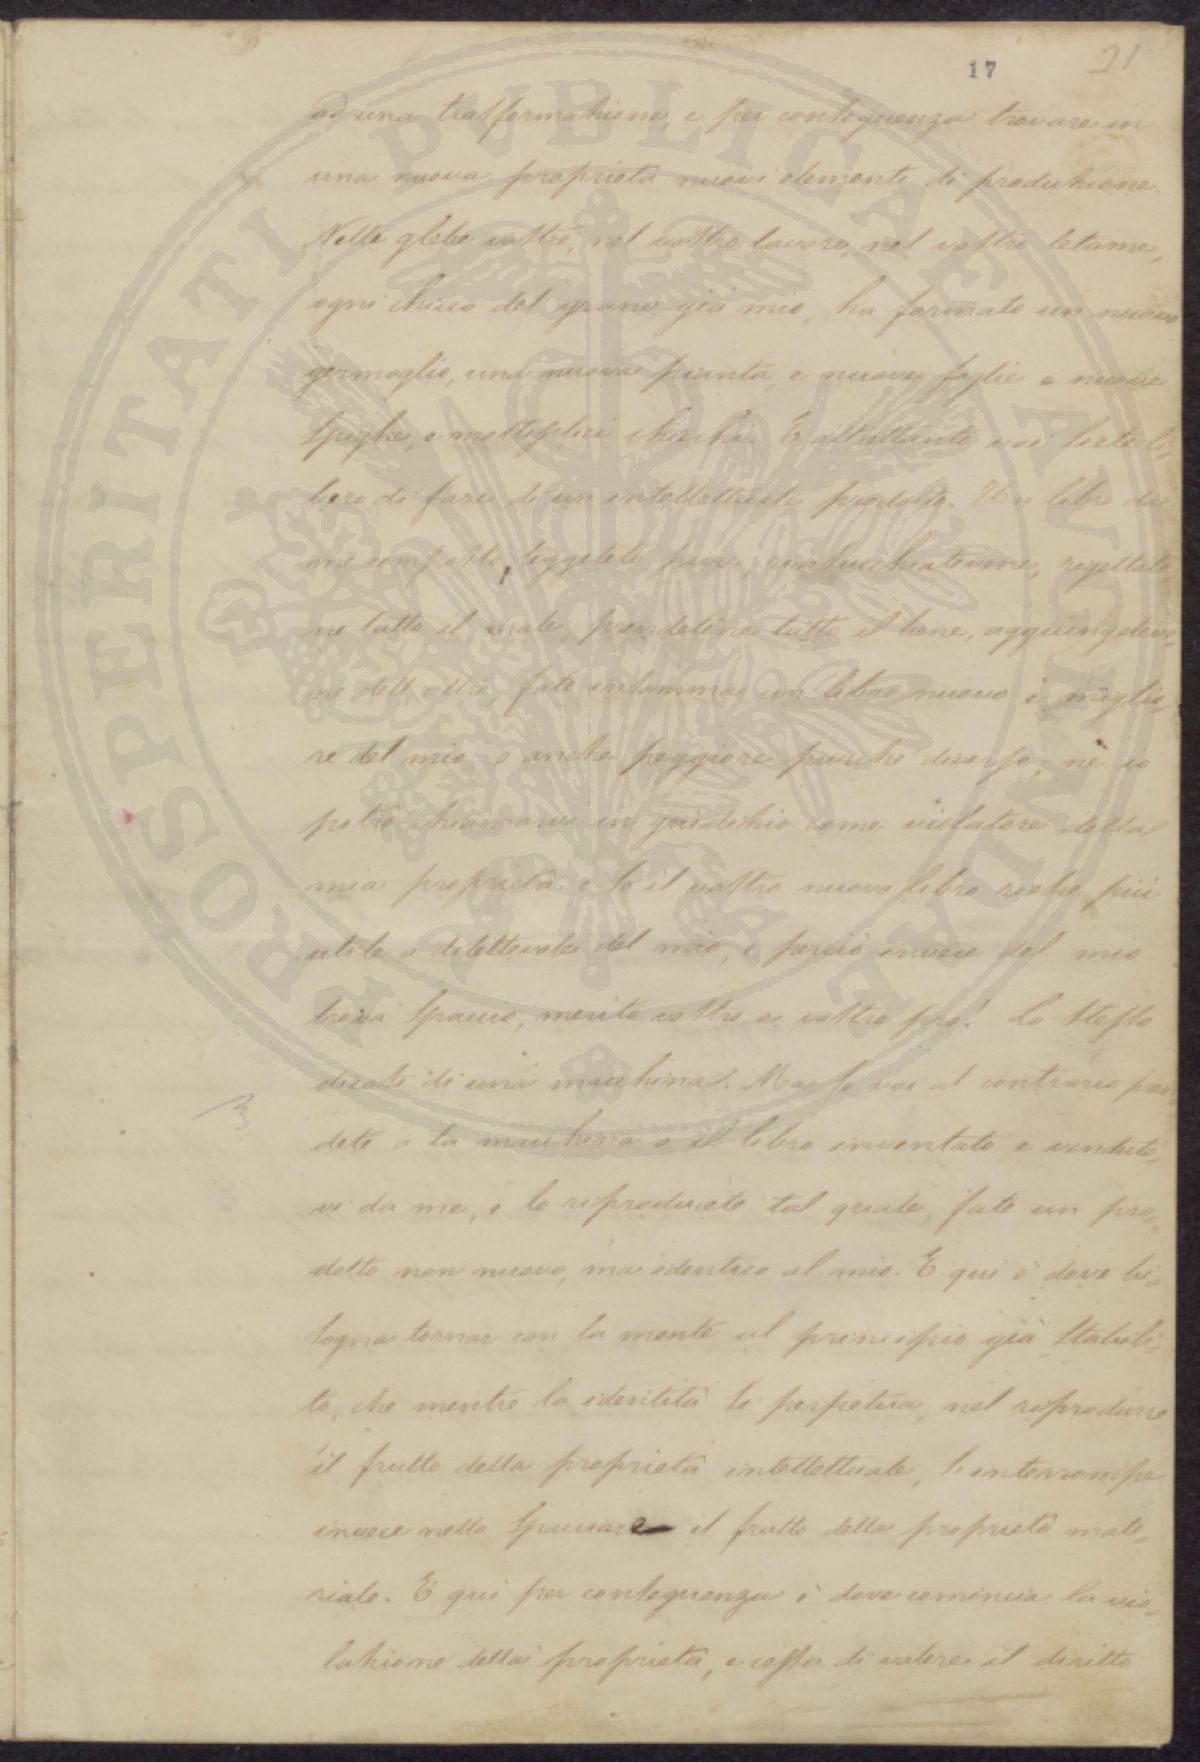 17
31
ad una trasformazione e per conseguenza trovare in
una nuova proprietà nuovi elementi di produzione.
Nelle glebe vostre, nel vostro lavoro, nel vostro letame,
ogni chicco del grano già mio, ha formato un nuovo
germoglio, una nuova pianta, e nuove foglie e nuove
spighe, e moltiplici chicchi. E altrettanto voi siete li-
bero di fare di un intellettuale prodotto. Un libro da
me composto, leggetelo pure, rigettate
ne tutto il male, prendetene tutto il bene, aggiungeteve-
ne dell'altro, fate insomma un libro nuovo e miglio-
re del mio o anche peggiore purché diverso, né io
potrò chiamarvi in giudizio come violatore della
mia proprietà: e se il vostro nuovo libro riesce più
utile o dilettevole del mio, e perciò invece del mio
trova spaccio, merito vostro e vostro pro! Lo stesso
dicasi di una macchina. Ma se voi al contrario pren-
dete o la macchina o il libro inventato e venduto-
vi da me, e lo riproducete tal quale, fate un pro-
dotto non nuovo, ma identico al mio. E qui è dove bi-
sogna tornar con la mente al principio già stabili-
to, che mentre la identità si perpetua, nel riprodurre
il frutto della proprietà intellettuale, s'interrompe
invece nello spacciare il frutto della proprietà mate-
riale. E qui per conseguenza è dove comincia la vio-
lazione della proprietà, e cessa di valere il diritto
PROSPERITATI PVBLICAE AVGENDAE